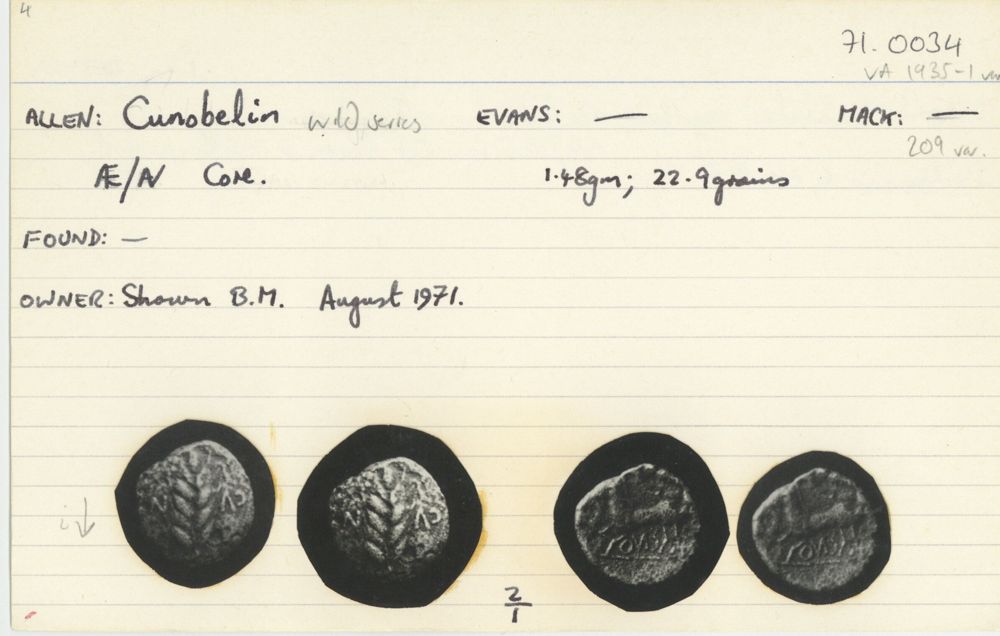 4
71.0034
VA 1935-1 var
ALLEN: Cunobelin wild series EVANS: — MACK: —
209 var.
Æ/AV Core. 1.48gm; 22.9grains
FOUND: —
OWNER: Shown B.M. August 1971.
2/1